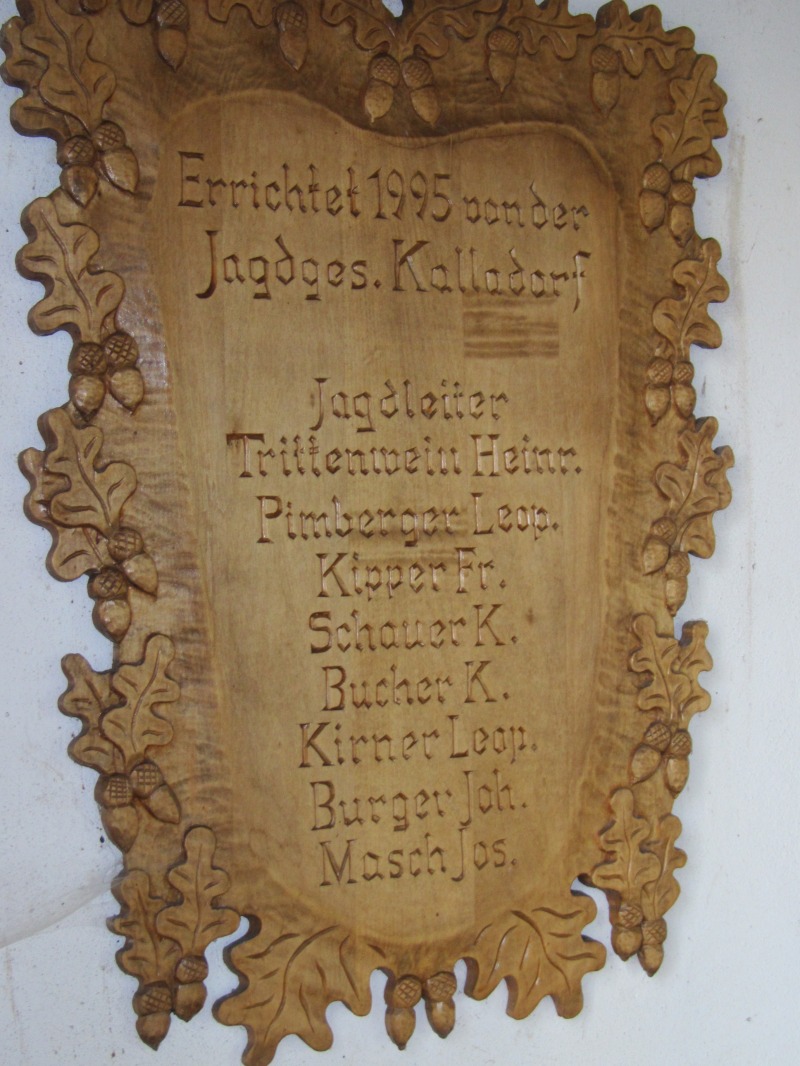 Errichtet 1995 von der
Jagdges. Kalladorf
Jagdleiter
Trittenwein Heinr.
Pimberger Leop.
Kipper Fr.
Schauer K.
Bucher K.
Kirner Leop.
Burger Joh.
Masch Jos.